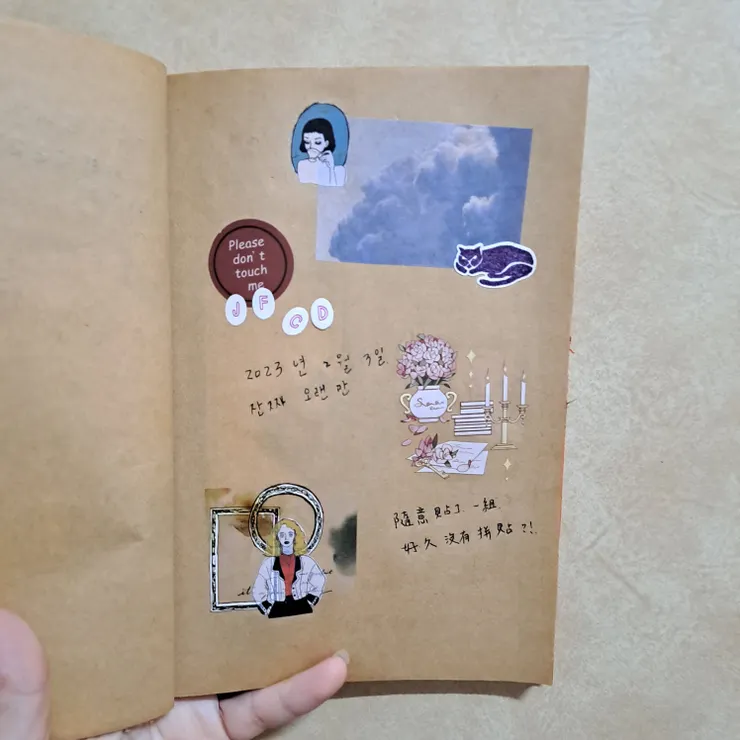 Please
don't
touch
me
J F C D
2023 년 2월 3일
잔짜 오랜 만
隨意貼了一組
好久沒有拼貼?!